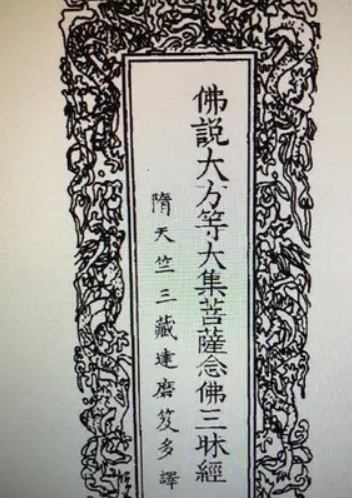 佛説大方等大集菩薩念佛三昧經
隋天竺三藏達磨笈多譯